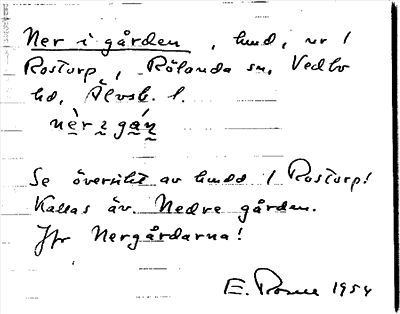 Ner i gården, hmd, nr 1
Rostorp, Rölanda sn, Vedbo
hd, Älvsb. l.
nèr i gán
Se översikt av hmdd / Rostorp!
Kallas äv. Nedre gården.
Jfr Nergårdarna!
E. 1954